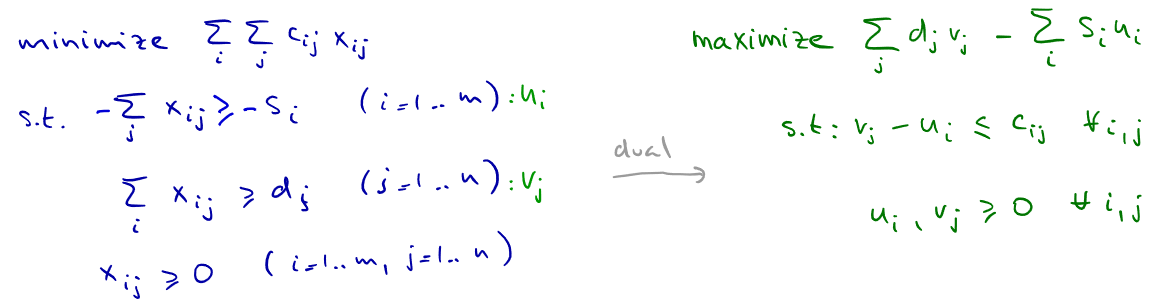 minimize ∑_i ∑_j c_ij x_ij
s.t. -∑_j x_ij ≥ -s_i (i=1..m) : u_i
∑_i x_ij ≥ d_j (j=1..n) : v_j
x_ij ≥ 0 (i=1..m, j=1..n)
dual
maximize ∑_j d_j v_j - ∑_i s_i u_i
s.t: v_j - u_i ≤ c_ij ∀ i,j
u_i, v_j ≥ 0 ∀ i,j